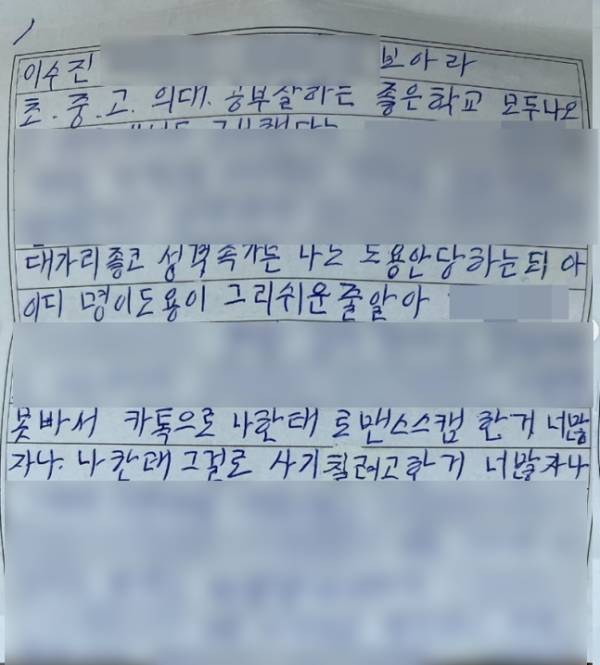 이수진 보아라
초.중.고. 의대. 공부살하는 좋은학교 모두나오
대가리좋고 성격 나는 도용안당하는되 아
이디 명이도용이 그리쉬운줄알아
못바서 카톡으로 나한태 로맨스스캠 한거 너맞
자나. 나한태 그걸로 사기칠려고한거 너맞자나